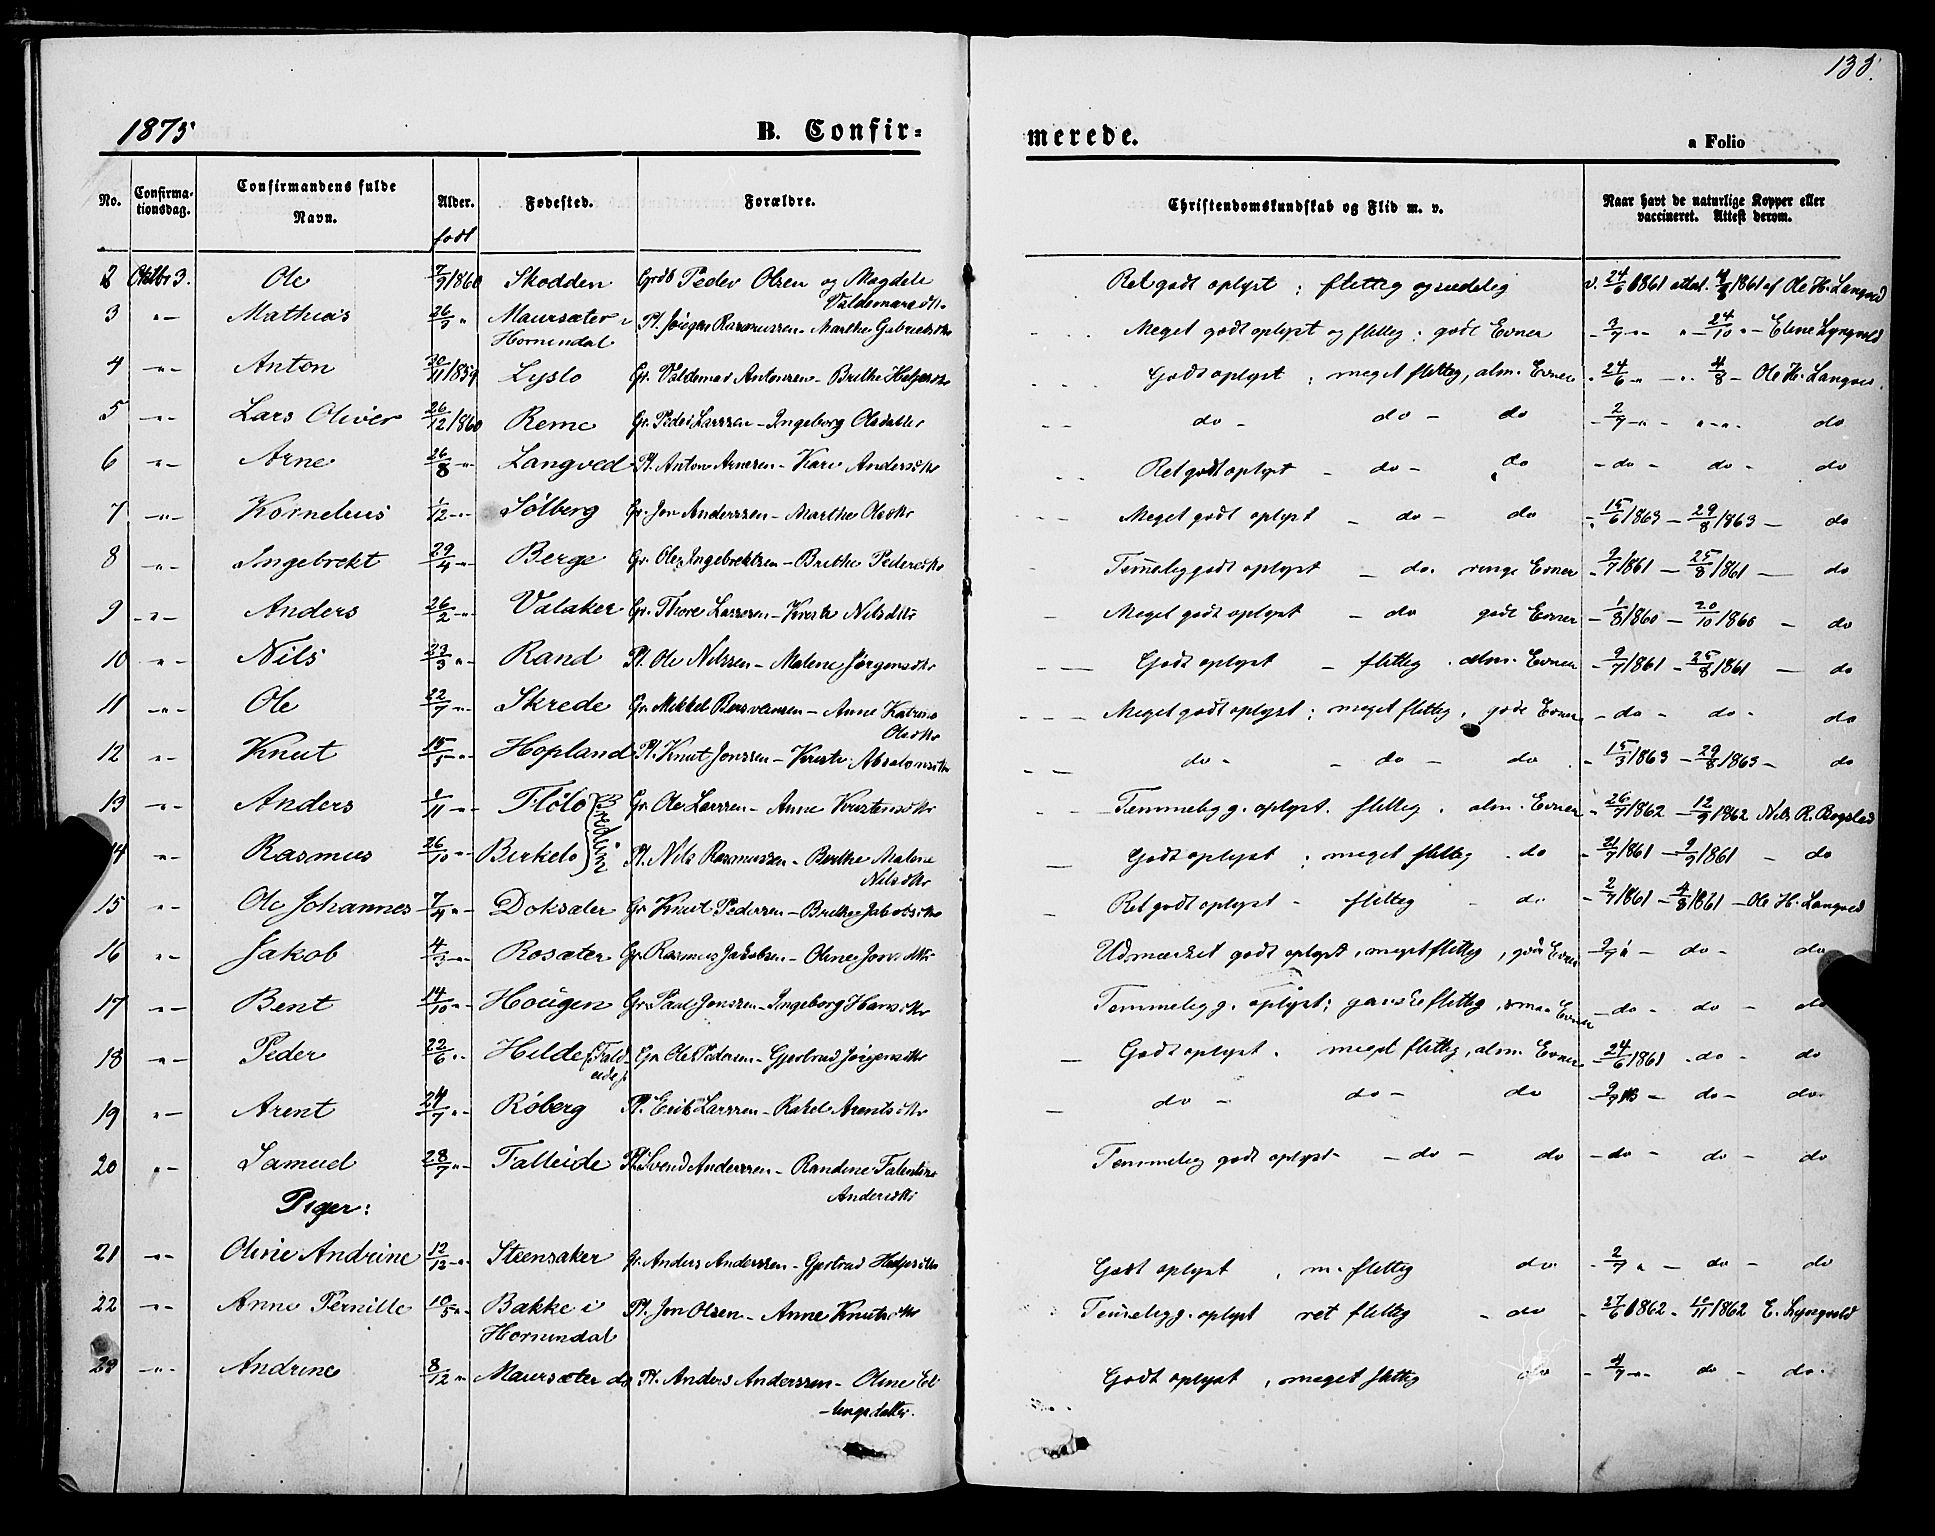 138.
1875
B. Confir=
merede.
a Folio
No.
Confirma-
tionsdag.
Confirmandens fulde
Navn.
Alder.
født
Fødested.
Forældre.
Christendomskundskab og Flid m. v.
Naar havt de naturlige Kopper eller
vaccineret. Attest derom.
2 Oktbr 3. Ole 7/9 1860 Skodden Grdb Peder Olsen og Magdele Ret godt oplyst ; flittig og sædelig v. 24/6 1861 attst. 4/8 1861 af Ole H. Langved
Valdemarsdtr
3 -"- Mathias 26/9 " Maursæter i Pl. Jørgen Rasmussen - Marthe Gabrielsdtr Meget godt oplyst og flittig ; gode Evner - 2/7 -"- " - 24/10 "- Eline Lyngvold
Hornindal
4 -"- Anton 30/11 1859 Lyslo Gr. Valdemar Antonsen - Brithe Helgesdtr Godt oplyst ; meget flittig, alm. Evner - 24/6 " - ". 4/8 - Ole H. Langved
5 -"- Lars Oliver 26/12 1860 Reme Gr. Peder Larssen - Ingeborg Olsdatter do - do - do 2/7 -"- "-"- do
6 -"- Arne 26/8 -"- Langved Pl. Anton Arnesen - Kari Andersdtr Ret godt oplyst - do - do - do - do - do
7 -"- Kornelius 1/12 -"- Sølberg Gr. Jon Anderssen - Marthe Olsdtr Meget godt oplyst - do - do - 15/6 1863 - 29/8 1863 - do
8 -"- Ingebrekt 29/4 -"- Berge Gr. Ole Ingebrektsen - Brithe Pedersdtr Temmelig godt oplyst - do. ringe Evner - 2/7 1861 - 25/8 1861 - do
9 -"- Anders 26/2 -"- Valaker Gr. Thore Larssen - Kirsti Nilsdtr Meget godt oplyst - do gode Evner - 1/8 1860 - 20/10 1860 - do
10 -"- Nils 23/3 "- Rand Pl. Ole Nilssen - Malene Jørgensdtr Godt oplyst - flittig . alm. Evner - 2/7 1861 - 25/8 1861 - do
11 -"- Ole 22/7 -"- Skrede Gr. Mikkel Rasmussen - Anne Katrine Meget godt oplyst ; meget flittig, gode Evner - do - do - do
Olsdtr
12 -"- Knut 15/5 -"- Hopland Pl. Knut Jonssen - Kirsti Absalonsdtr do - - do - do - 15/3 1863 - 29/8 1863 - do
13 -"- Anders 1/11 -"- Fløto Gr. Ole Larssen - Anne Kristensdtr Temmelig g. oplyst. flittig . alm. Evner - 26/7 1862 - 12/9 1862 Nils R. Bogstad
Bredeim
14 -"- Rasmus 26/10 "- Birkelo Pl. Nils Rasmussen - Berthe Malene Godt oplyst ; meget flittig . do - 21/7 1861 - 9/9 1861 - do
Nilsdtr
15 -"- Ole Johannes 7/4 "- Doksæter Gr. Knut Pedersen - Brithe Jakobsdtr Ret godt oplyst - flittig - do - 2/7 1861 - 4/8 1861 - Ole H. Langved
16 -"- Jakob 4/3 -"- Rosæter Gr. Rasmus Jakobsen - Oline Jonsdtr Udmærket godt oplyst, meget flittig, gode Evner - 2/7 " - do - do
17 -"- Bent 14/10 "- Hougen Gr. Paul Jonssen - Ingeborg Hansdtr Temmelig g. oplyst ; ganske flittig, smaa Evner - do - do - do
18 -"- Peder 22/6 "- Hilde Gr. Ole Pedersen - Gjertrud Jørgensdtr Godt oplyst . meget flittig, alm. Evner - 24/6 1861 . do - do
19 "- Arent 24/7 "- Røberg Pl. Erik Larssen - Rakel Arentsdtr do - do - do - 2/7 - do - do
20 "- Samuel 28/7 "- Talleide Pl. Svend Anderssen - Randine Talentine Temmelig godt oplyst - do - do - do - do - do
Andersdtr
Piger:
21 -"- Oline Andrine 12/12 -"- Steensaker Gr. Anders Anderssen - Gjertrud Helgesdtr Godt oplyst , m. flittig do - 2/7 " - do - do
22 -"- Anne Pernille 10/5 "- Bakke i Pl. Jon Olsen - Anne Knutsdtr Temmelig g. oplyst ret flittig - do - 27/6 1862 - 10/11 1862 E. Lyngvold
Hornindal
23 -"- Andrine 8/12 " Maursæter do Pl. Anders Anderssen - Oline El- Godt oplyst , meget flittig do - 4/7 -"- do - do.
lingsdatter.